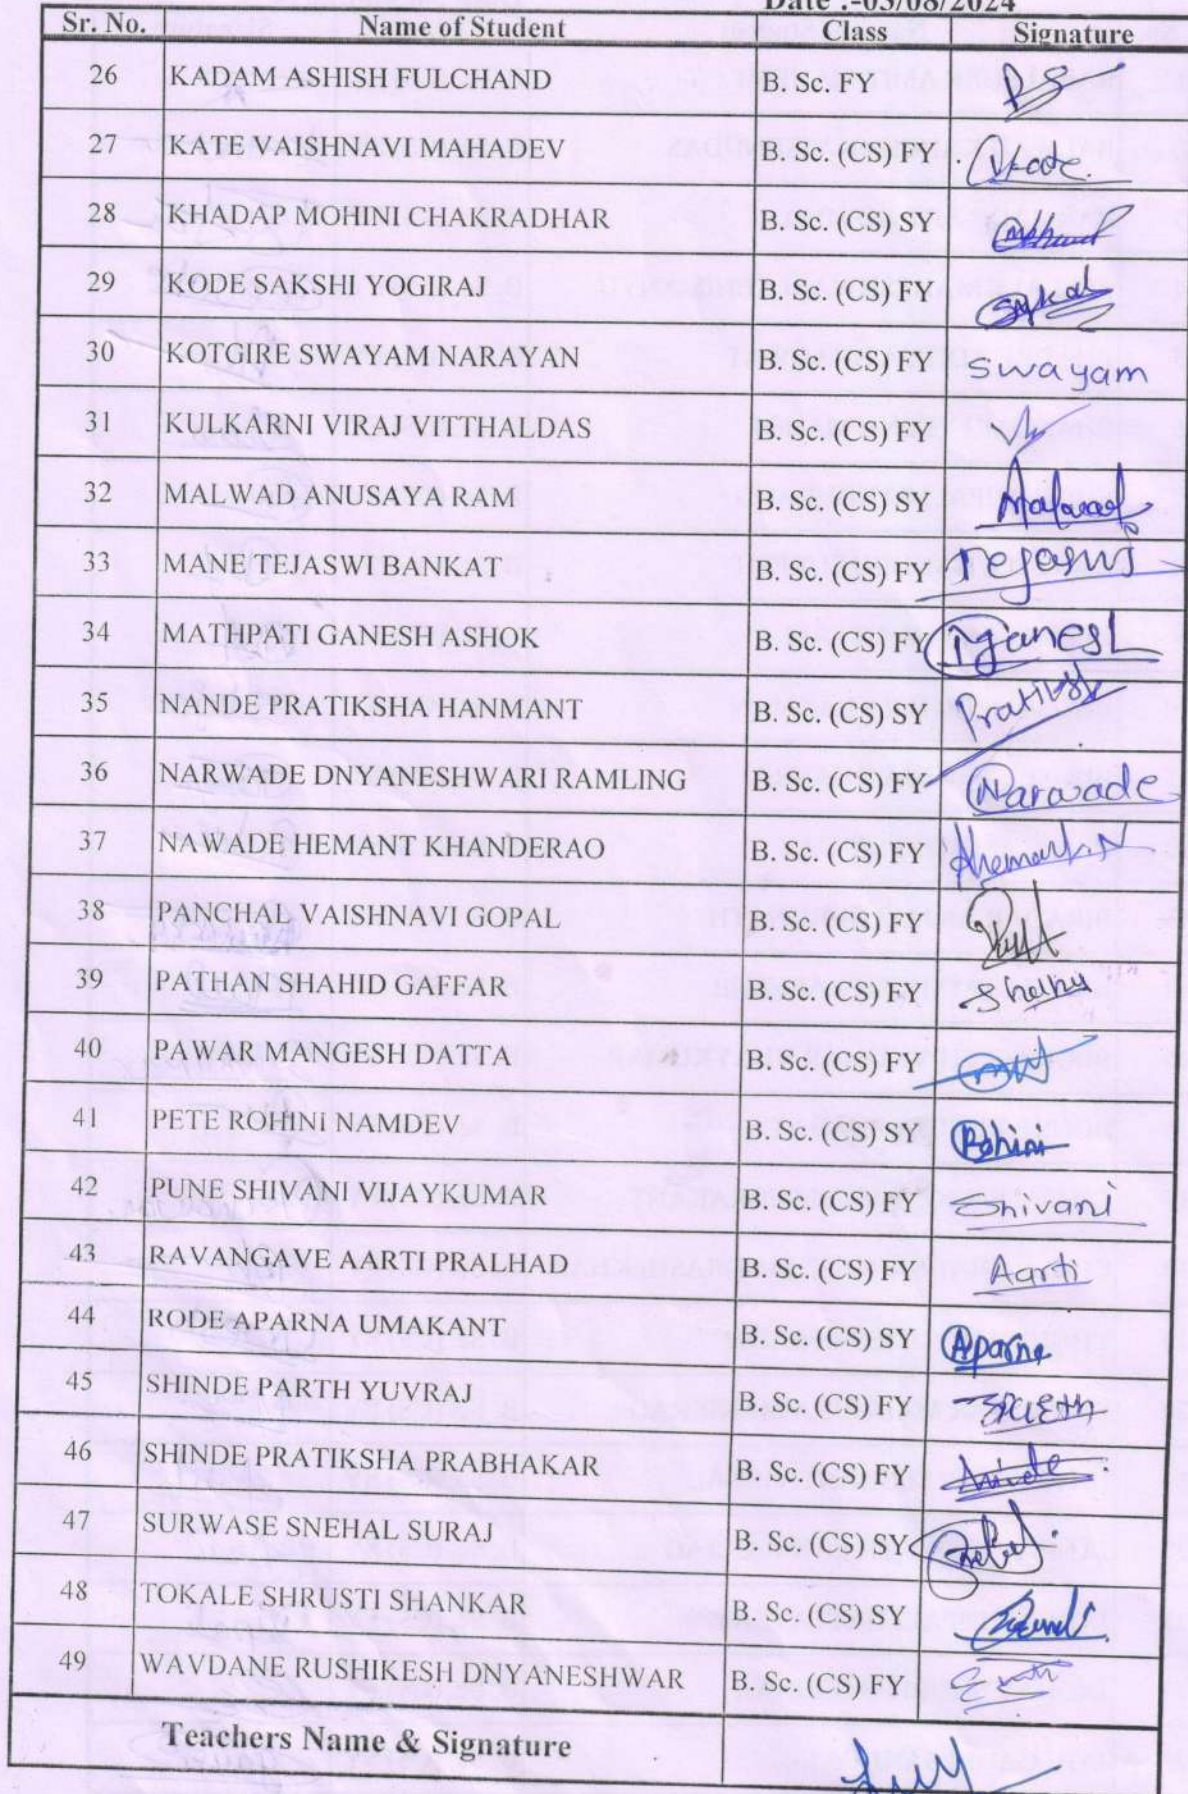 Date :-03/08/2024
Sr. No. Name of Student Class Signature
26 KADAM ASHISH FULCHAND B. Sc. FY
27 KATE VAISHNAVI MAHADEV B. Sc. (CS) FY Kate
28 KHADAP MOHINI CHAKRADHAR B. Sc. (CS) SY
29 KODE SAKSHI YOGIRAJ B. Sc. (CS) FY
30 KOTGIRE SWAYAM NARAYAN B. Sc. (CS) FY Swayam
31 KULKARNI VIRAJ VITTHALDAS B. Sc. (CS) FY
32 MALWAD ANUSAYA RAM B. Sc. (CS) SY Malwad
33 MANE TEJASWI BANKAT B. Sc. (CS) FY Tejaswi
34 MATHPATI GANESH ASHOK B. Sc. (CS) FY Ganesh
35 NANDE PRATIKSHA HANMANT B. Sc. (CS) SY
36 NARWADE DNYANESHWARI RAMLING B. Sc. (CS) FY Narwade
37 NAWADE HEMANT KHANDERAO B. Sc. (CS) FY Hemant.N
38 PANCHAL VAISHNAVI GOPAL B. Sc. (CS) FY
39 PATHAN SHAHID GAFFAR B. Sc. (CS) FY
40 PAWAR MANGESH DATTA B. Sc. (CS) FY
41 PETE ROHINI NAMDEV B. Sc. (CS) SY Rohini
42 PUNE SHIVANI VIJAYKUMAR B. Sc. (CS) FY Shivani
43 RAVANGAVE AARTI PRALHAD B. Sc. (CS) FY Aarti
44 RODE APARNA UMAKANT B. Sc. (CS) SY Aparna
45 SHINDE PARTH YUVRAJ B. Sc. (CS) FY
46 SHINDE PRATIKSHA PRABHAKAR B. Sc. (CS) FY
47 SURWASE SNEHAL SURAJ B. Sc. (CS) SY
48 TOKALE SHRUSTI SHANKAR B. Sc. (CS) SY
49 WAVDANE RUSHIKESH DNYANESHWAR B. Sc. (CS) FY
Teachers Name & Signature